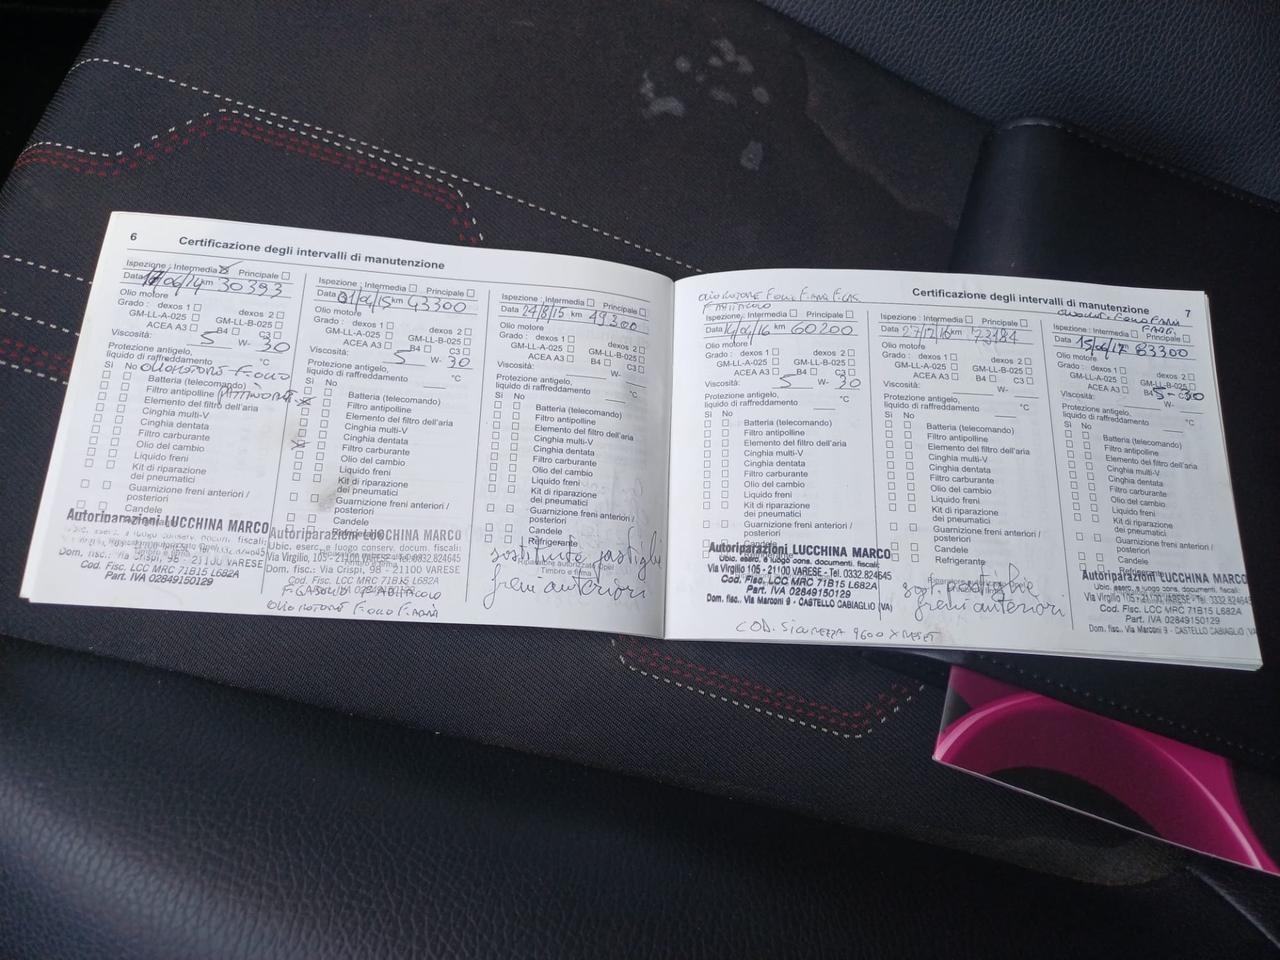 6
Certificazione degli intervalli di manutenzione
Ispezione: Intermedia Principale
Data 17/06/14 km 30393
Olio motore
Grado: dexos 1 dexos 2
GM-LL-A-025 GM-LL-B-025
ACEA A3 B4 C3
Viscosità: 5 W- 30
Protezione antigelo,
liquido di raffreddamento °C
Sì No OLIO MOTORE F. OLIO
Batteria (telecomando)
Filtro antipolline
Elemento del filtro dell'aria
Cinghia multi-V
Cinghia dentata
Filtro carburante
Olio del cambio
Liquido freni
Kit di riparazione
dei pneumatici
Guarnizione freni anteriori /
posteriori
Candele
Autoriparazioni LUCCHINA MARCO
Dom. fisc.: Via Crispi, 98 - 21100 VARESE
Cod. Fisc. LCC MRC 71B15 L682A
Part. IVA 02849150129
Ispezione: Intermedia Principale
Data 01/04/15 km 43300
Olio motore
Grado: dexos 1 dexos 2
GM-LL-A-025 GM-LL-B-025
ACEA A3 B4 C3
Viscosità: 5 W- 30
Protezione antigelo,
liquido di raffreddamento °C
Sì No
Batteria (telecomando)
Filtro antipolline
Elemento del filtro dell'aria
Cinghia multi-V
Cinghia dentata
Filtro carburante
Olio del cambio
Liquido freni
Kit di riparazione
dei pneumatici
Guarnizione freni anteriori /
posteriori
Candele
Refrigerante
Autoriparazioni LUCCHINA MARCO
Ubic. eserc. e luogo conserv. docum. fiscali:
Via Virgilio, 105 - 21100 VARESE - Tel. 0332.824645
Dom. fisc.: Via Crispi, 98 - 21100 VARESE
Cod. Fisc. LCC MRC 71B15 L682A
OLIO MOTORE F. OLIO F. ARIA
Ispezione: Intermedia Principale
Data 24/8/15 km 49300
Olio motore
Grado: dexos 1 dexos 2
GM-LL-A-025 GM-LL-B-025
ACEA A3 B4 C3
Viscosità: W-
Protezione antigelo,
liquido di raffreddamento °C
Sì No
Batteria (telecomando)
Filtro antipolline
Elemento del filtro dell'aria
Cinghia multi-V
Cinghia dentata
Filtro carburante
Olio del cambio
Liquido freni
Kit di riparazione
dei pneumatici
Guarnizione freni anteriori /
posteriori
Candele
Refrigerante
sostituite pastiglie
Riparatore autorizzato Opel
Timbro e firma
freni anteriori
Certificazione degli intervalli di manutenzione
7
OLIO MOTORE F. OLIO F. ARIA
Ispezione: Intermedia Principale
Data 14/04/16 km 60200
Olio motore
Grado: dexos 1 dexos 2
GM-LL-A-025 GM-LL-B-025
ACEA A3 B4 C3
Viscosità: 5 W- 30
Protezione antigelo,
liquido di raffreddamento °C
Sì No
Batteria (telecomando)
Filtro antipolline
Elemento del filtro dell'aria
Cinghia multi-V
Cinghia dentata
Filtro carburante
Olio del cambio
Liquido freni
Kit di riparazione
dei pneumatici
Guarnizione freni anteriori /
posteriori
Candele
Autoriparazioni LUCCHINA MARCO
Ubic. eserc. e luogo cons. documenti. fiscali:
Via Virgilio, 105 - 21100 VARESE - Tel. 0332.824645
Cod. Fisc. LCC MRC 71B15 L682A
Part. IVA 02849150129
Dom. fisc.: Via Marconi 9 - CASTELLO CABIAGLIO (VA)
COD. SICUREZZA 9600 X RESET
Ispezione: Intermedia Principale
Data 27/12/16 km 73484
Olio motore
Grado: dexos 1 dexos 2
GM-LL-A-025 GM-LL-B-025
ACEA A3 B4 C3
Viscosità: W-
Protezione antigelo,
liquido di raffreddamento °C
Sì No
Batteria (telecomando)
Filtro antipolline
Elemento del filtro dell'aria
Cinghia multi-V
Cinghia dentata
Filtro carburante
Olio del cambio
Liquido freni
Kit di riparazione
dei pneumatici
Guarnizione freni anteriori /
posteriori
Candele
Refrigerante
sost. pastiglie
freni anteriori
Ispezione: Intermedia Principale
Data 15/06/17 83300
Olio motore
Grado: dexos 1 dexos 2
GM-LL-A-025 GM-LL-B-025
ACEA A3 B4 5-30
Viscosità: W-
Protezione antigelo,
liquido di raffreddamento °C
Sì No
Batteria (telecomando)
Filtro antipolline
Elemento del filtro dell'aria
Cinghia multi-V
Cinghia dentata
Filtro carburante
Olio del cambio
Liquido freni
Kit di riparazione
dei pneumatici
Guarnizione freni anteriori /
posteriori
Candele
Autoriparazioni LUCCHINA MARCO
Cod. Fisc. LCC MRC 71B15 L682A
Part. IVA 02849150129
Dom. fisc.: Via Marconi 9 - CASTELLO CABIAGLIO (VA)